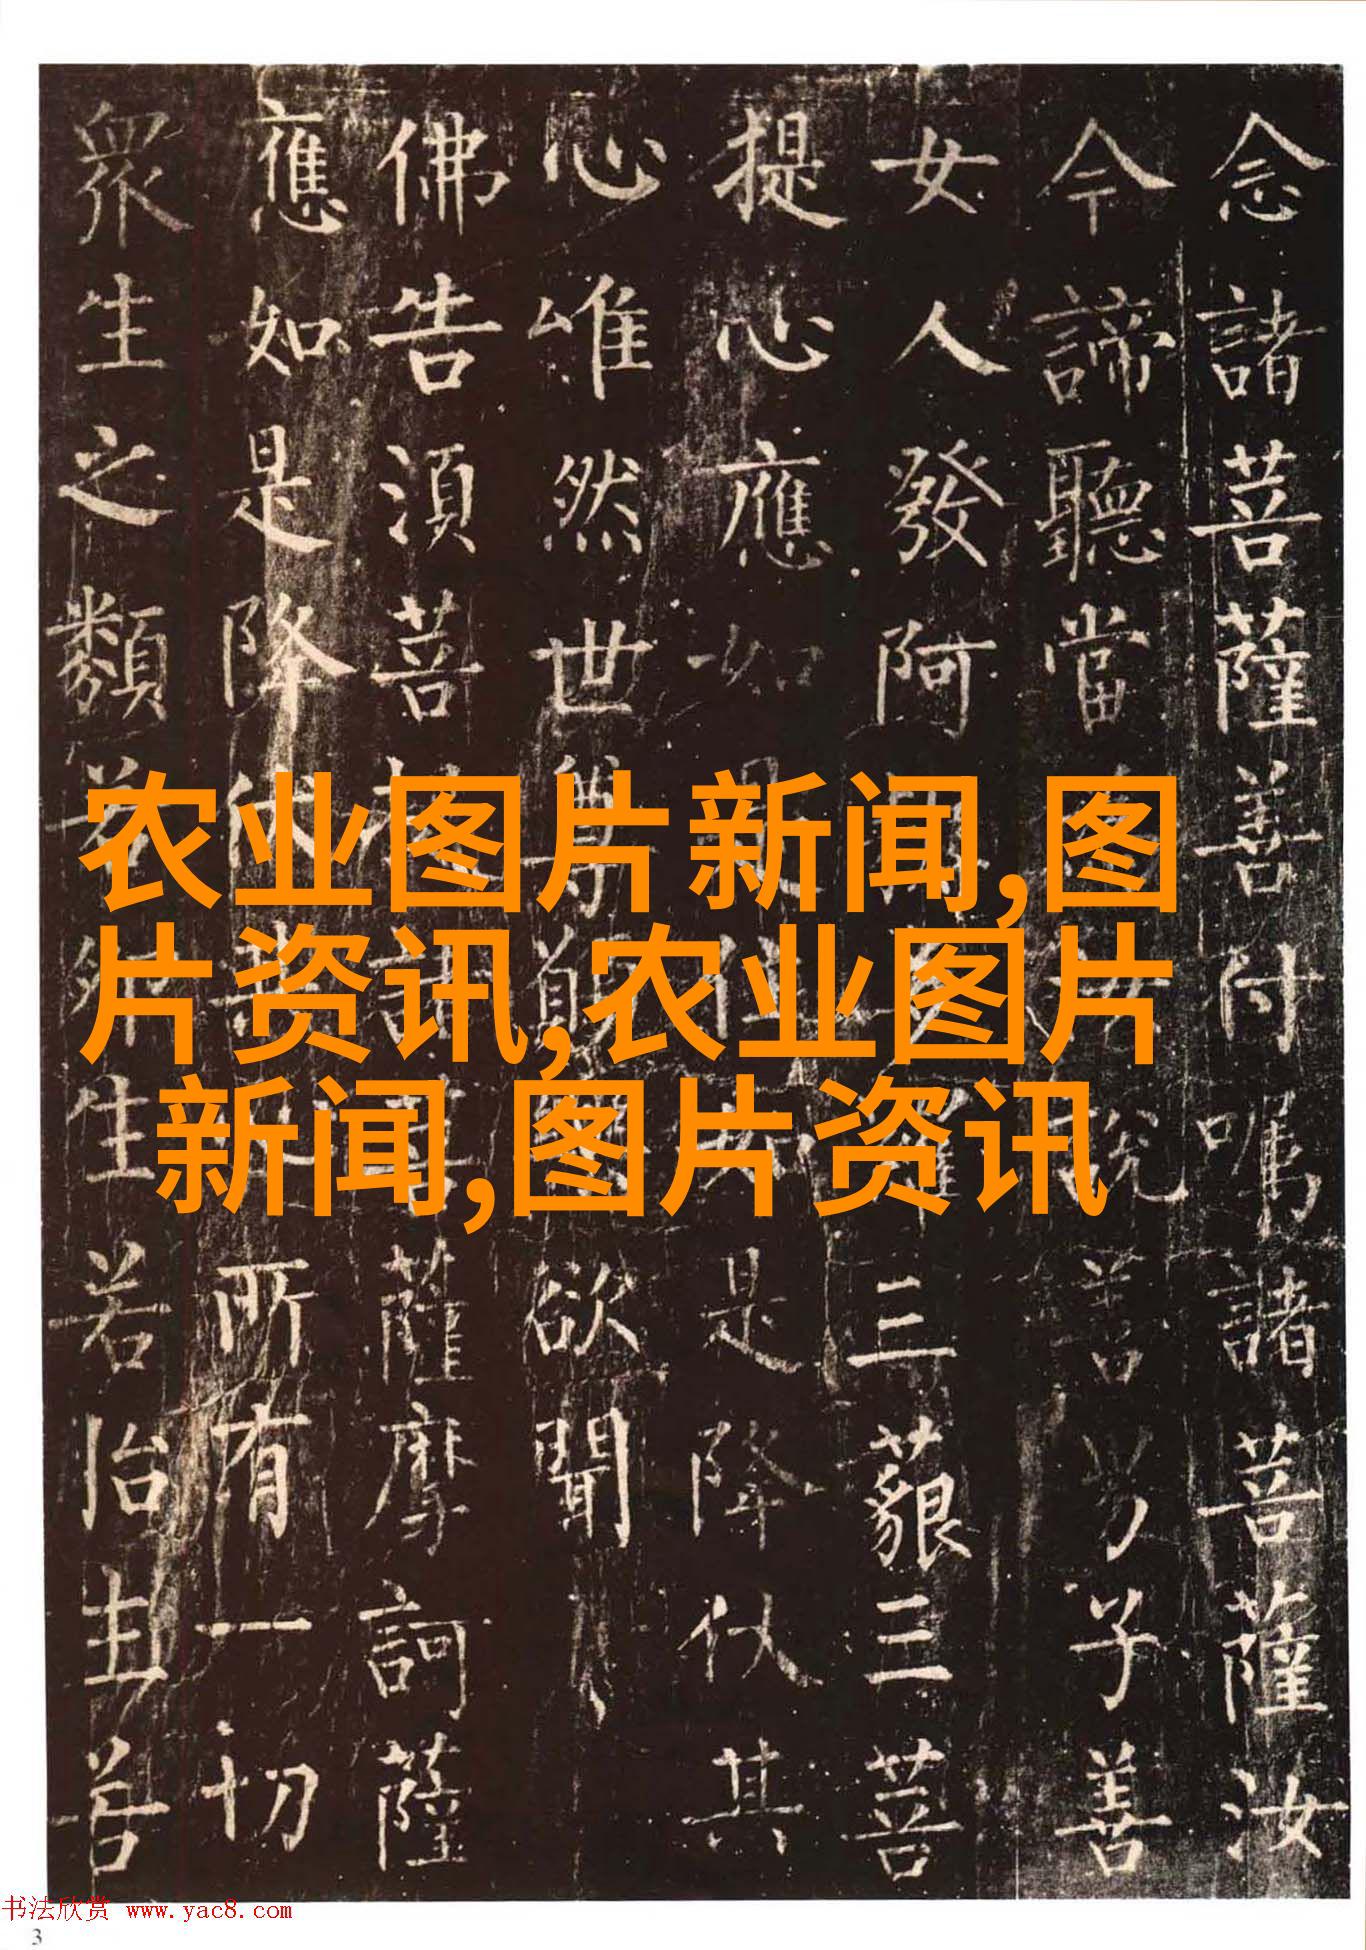 念諸菩薩善付嘱諸菩薩汝
今諦聽當說善男子善
女人發阿羅三藐三菩
提心應如是住如是降伏其
心唯然世尊欲聞
佛告須菩提諸菩薩摩訶薩
應如是降伏所有一切
眾生之類若卵生若胎生若
农业图片新闻,图
片资讯,农业图片
新闻,图片资讯
书法欣赏 www.yac8.com
3